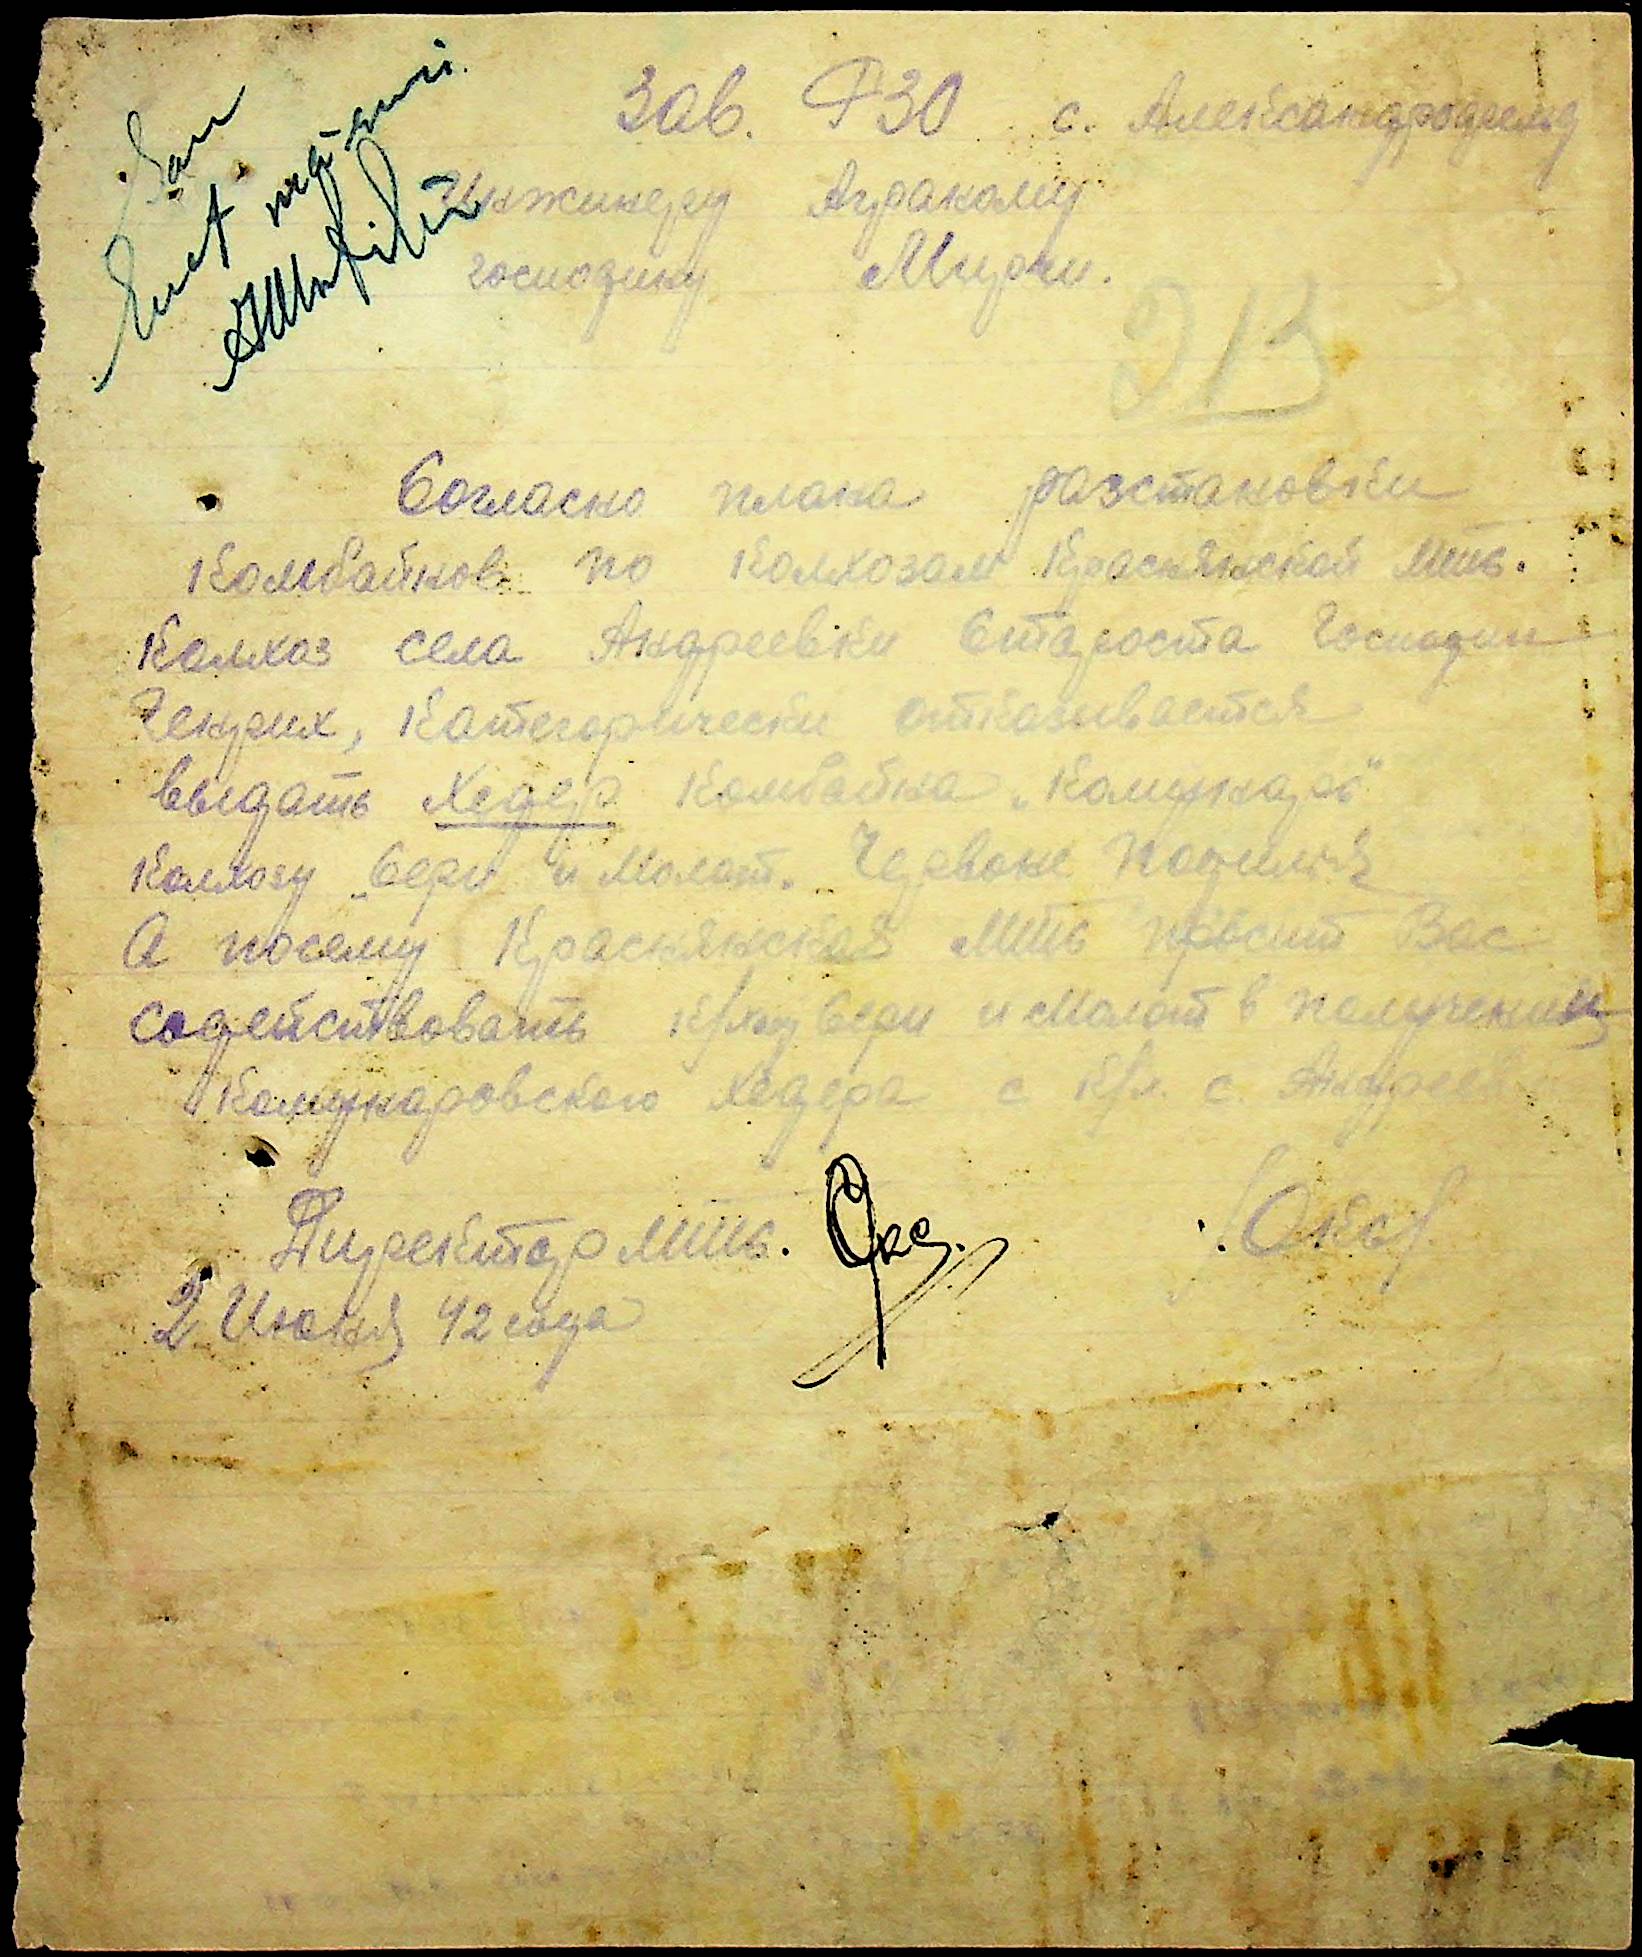 Зав. ФЗО с. Александродилд
Инжинеру Аграному
господину Мирчи.
213
Согласно плана разстановки
Комбайнов по Колхозам Краснянской мтс.
Колхоз села Андреевки Староста Господин
категорически отказывается
выдать Хедер Комбайна „Комунара"
Колхозу „Серп и Молот„ Червоне Поділля
А посему Краснянская мтс просит Вас
содействовать к/хозу Серп и Молот в получении
Комунаровского Хедера с к/х. с. Андреев
Директор мтс. Окс. /Окс/
2 Июня 42 года